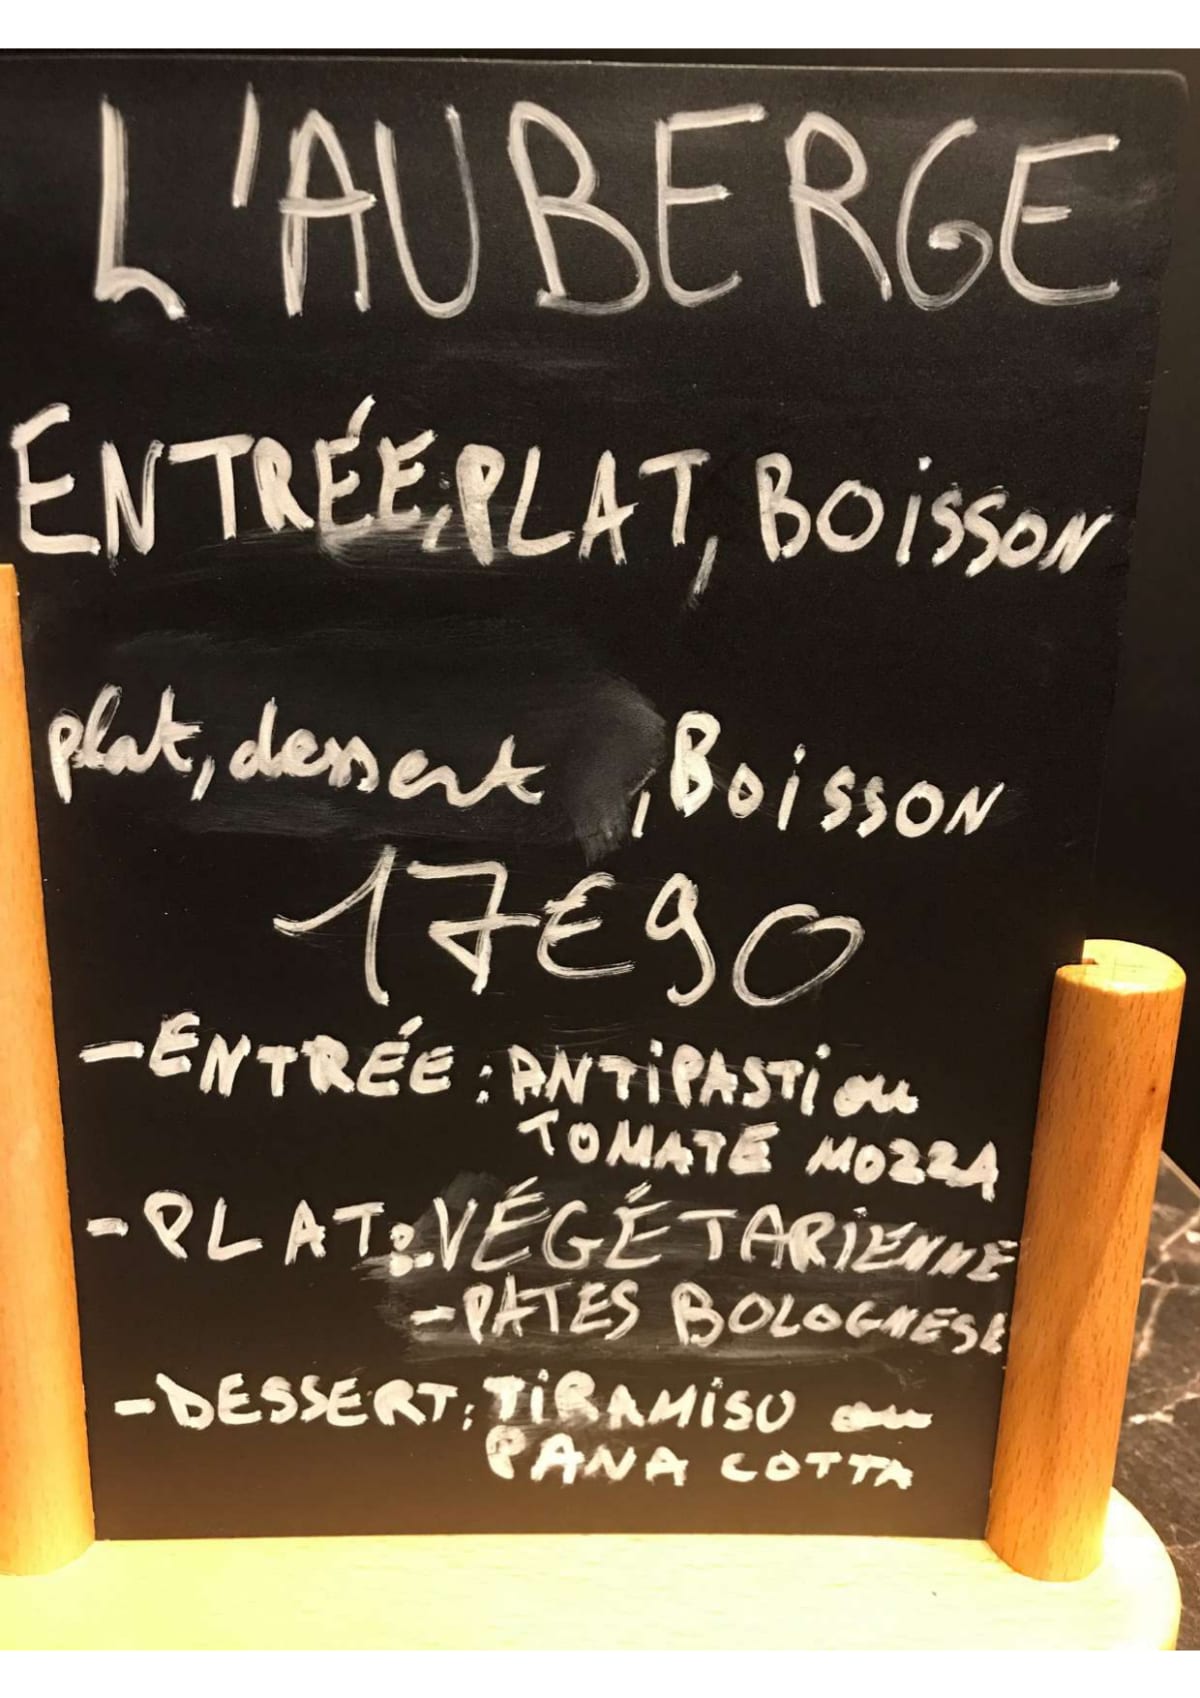 L'AUBERGE
ENTRÉE, PLAT, BOISSON
plat, dessert , BOISSON
17€90
- ENTRÉE : ANTIPASTI ou
TOMATE MOZZA
- PLAT : VÉGÉTARIENNE
- PATES BOLOGNESE
- DESSERT : TIRAMISU ou
PANA COTTA